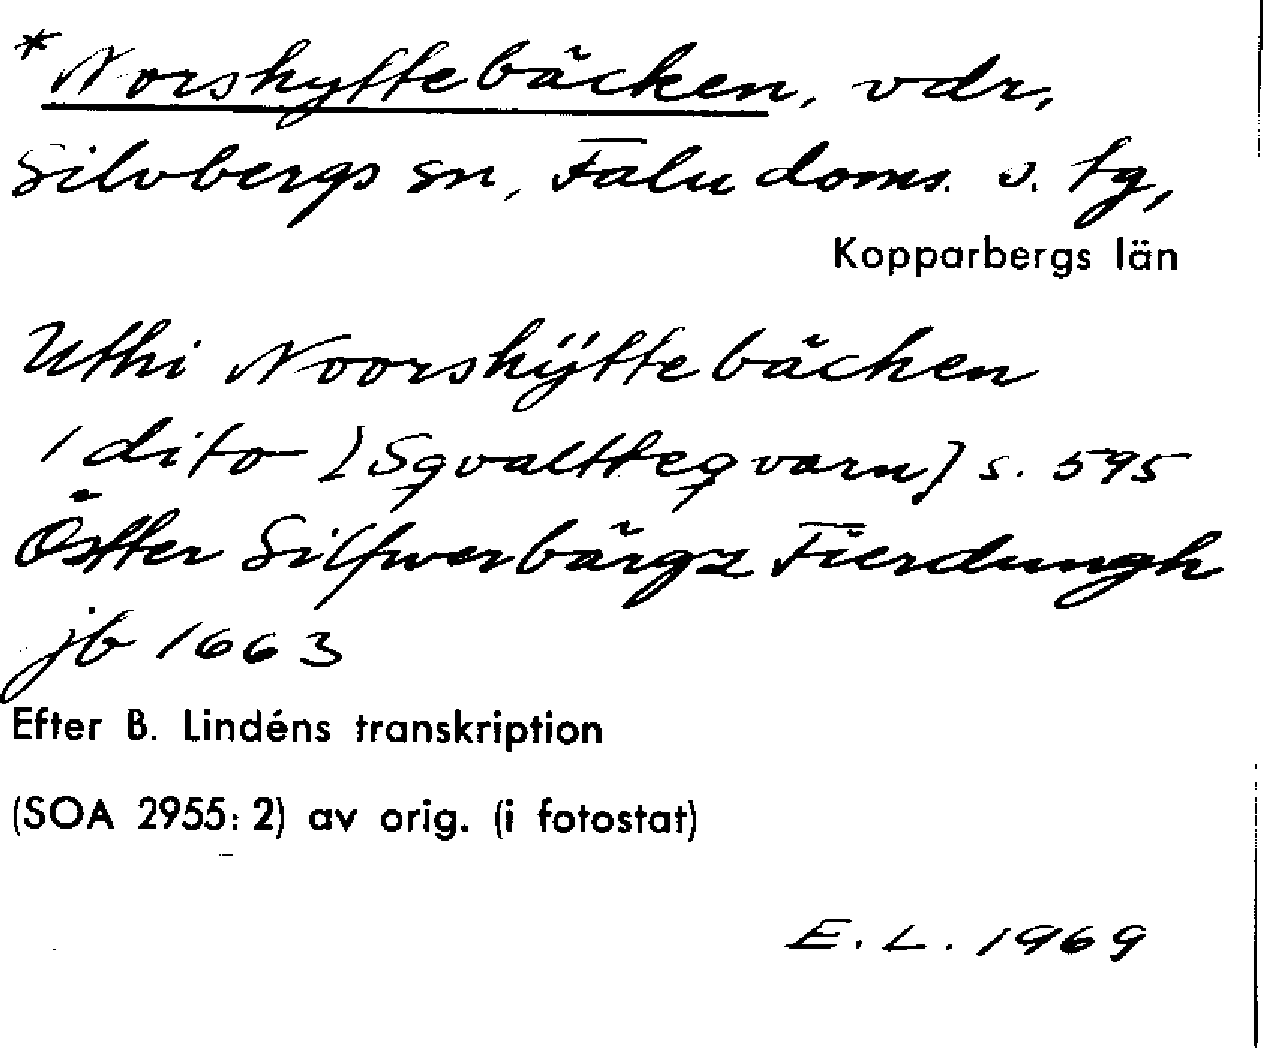 *Norshyttebäcken, vdr,
Silvbergs sn, Falu doms. s. tg,
Kopparbergs län
Uthi Noorshÿttebächen
1 dito [Sqvaltteqvarn] s. 595
Östter Silfwerbärgz Fierdungh
jb 1663
Efter B. Lindéns transkription
(SOA 2955:2) av orig. (i fotostat)
E. L. 1969